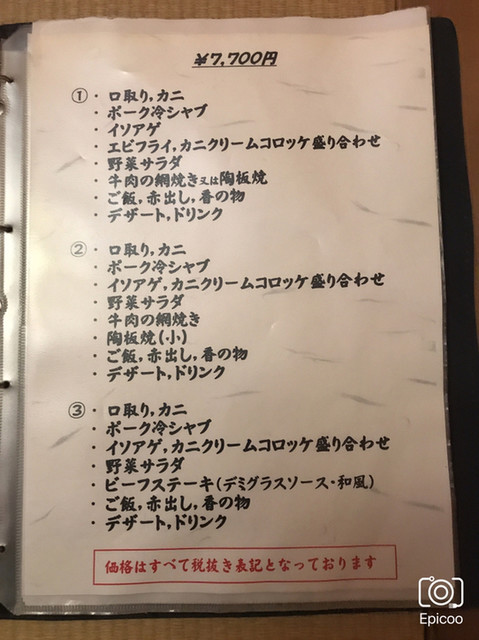 ¥7,700円
①・口取り,カニ
・ポーク冷シャブ
・イソアゲ
・エビフライ,カニクリームコロッケ盛り合わせ
・野菜サラダ
・牛肉の網焼き又は陶板焼
・ご飯,赤出し,香の物
・デザート,ドリンク
②・口取り,カニ
・ポーク冷シャブ
・イソアゲ,カニクリームコロッケ盛り合わせ
・野菜サラダ
・牛肉の網焼き
・陶板焼(小)
・ご飯,赤出し,香の物
・デザート,ドリンク
③・口取り,カニ
・ポーク冷シャブ
・イソアゲ,カニクリームコロッケ盛り合わせ
・野菜サラダ
・ビーフステーキ(デミグラスソース・和風)
・ご飯,赤出し,香の物
・デザート,ドリンク
価格はすべて税抜き表記となっております
Epicoo